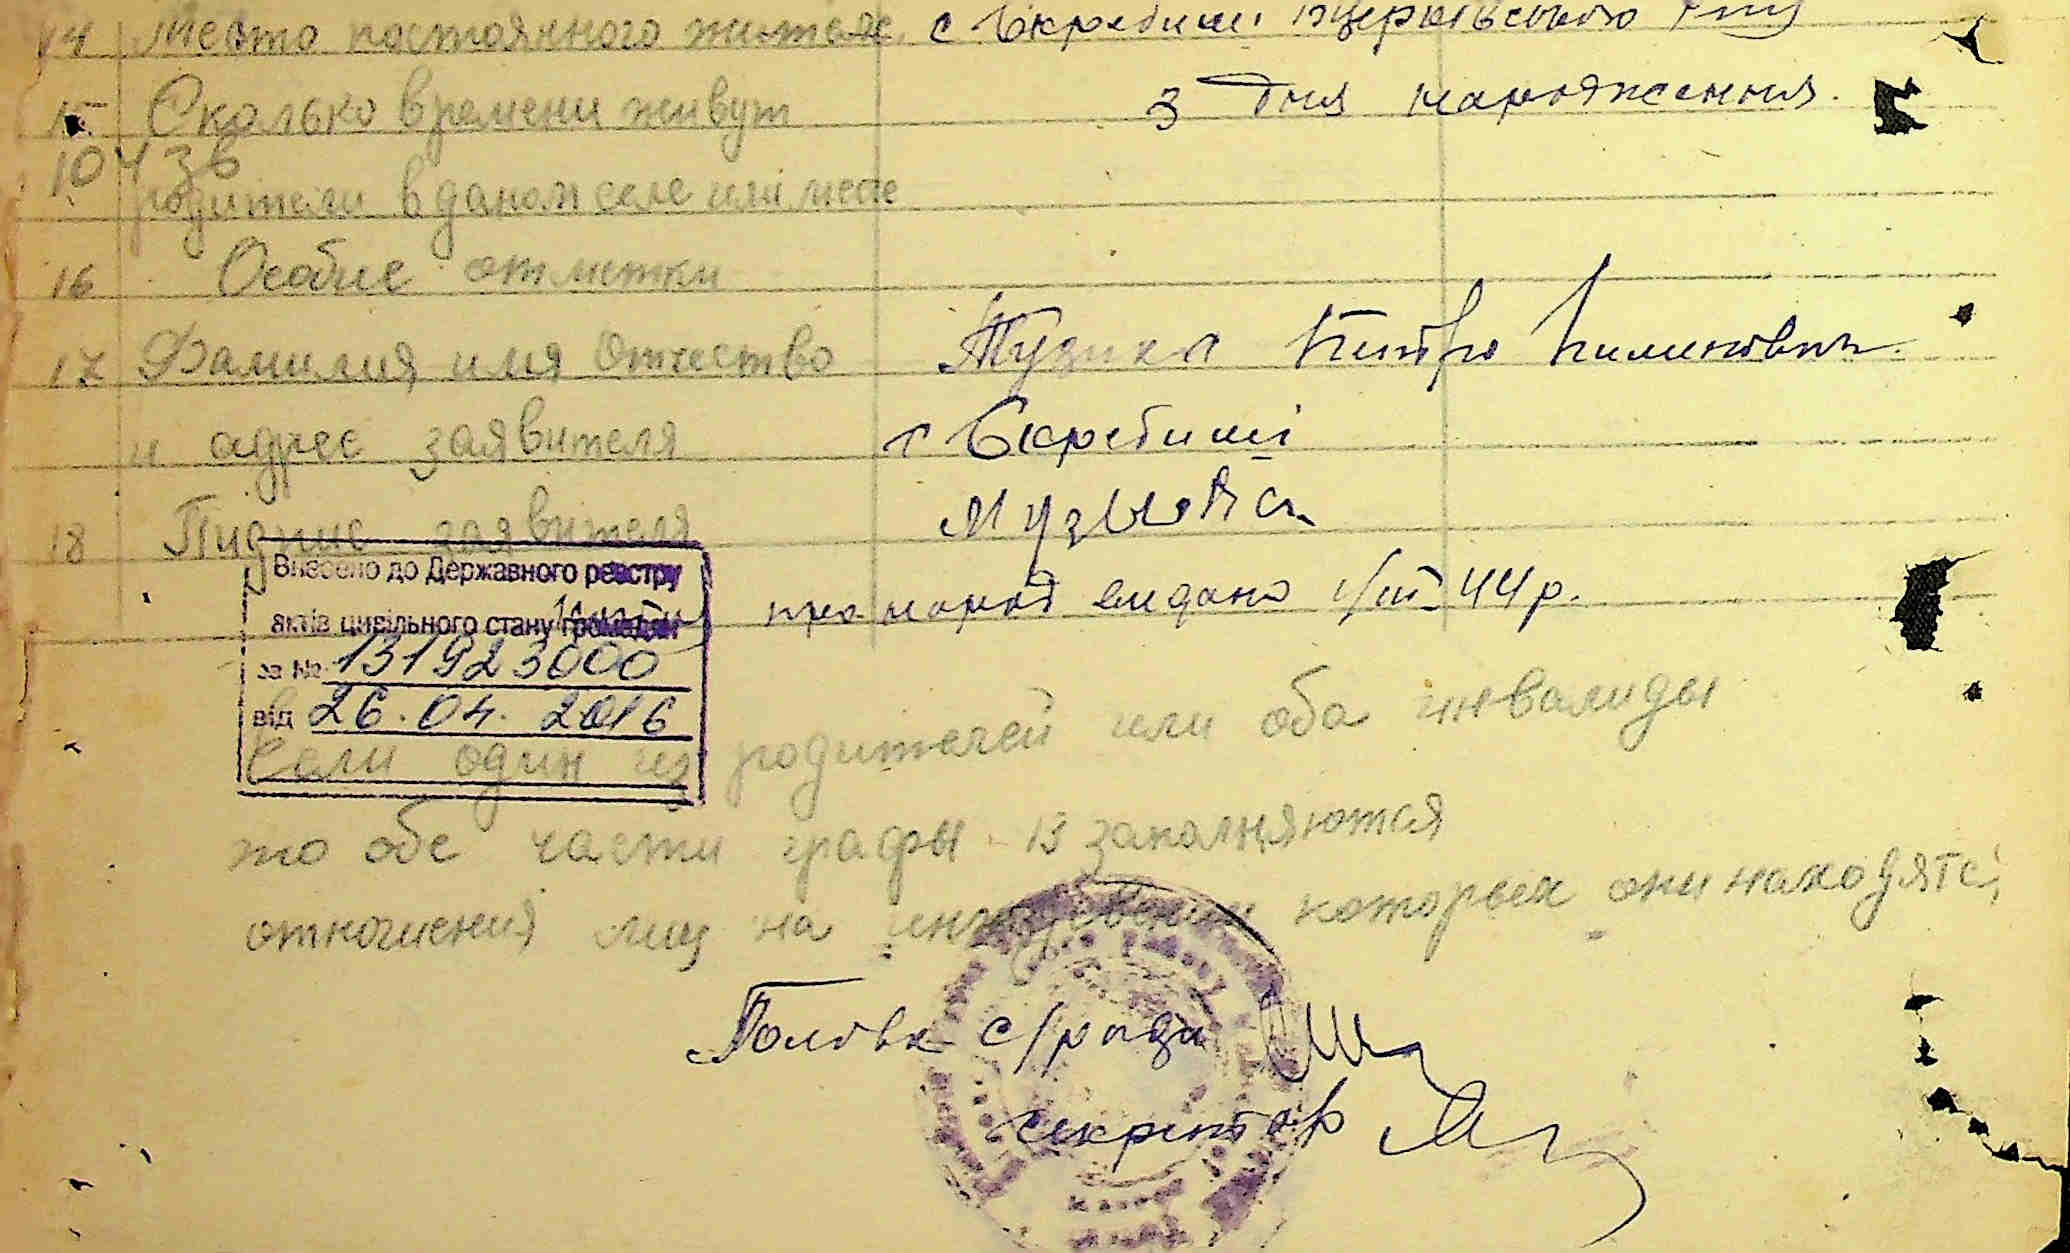 14 Место постоянного жителс с Скребиши
15 Сколько времени живут З дня народження.
10436
родители в даном селе или месте
16 Особие отметки
17 Фамилия имя отчество Музика Петро Пилипович
и адрес заявителя с Скребиші
18 Пидпис заявителя
Внесено до Державного реєстру
про народ видано 1/III-44р.
актів цивільного стану громадян
за № 131923000
від 26.04.2016
Если один из родителей или оба инвалиды
то обе части графы 13 заполняются
отношения лиц на иждевении которых они находятся
Голова с/ради
секретар